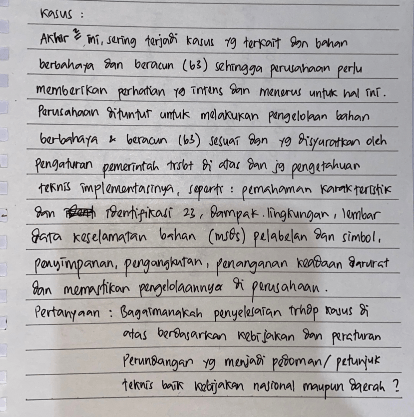 Kasus :
Akhir2 ini, sering terjadi kasus yg terkait dgn bahan
berbahaya dan beracun (b3) sehingga perusahaan perlu
memberikan perhatian yg intens dan menerus untuk hal ini.
Perusahaan dituntut untuk melakukan pengelolaan bahan
berbahaya & beracun (b3) sesuai dgn yg disyaratkan oleh
pengaturan pemerintah trsbt di atas dan jg pengetahuan
teknis implementasinya, seperti : pemahaman karakteristik
dan identifikasi 23, dampak lingkungan, lembar
data keselamatan bahan (msds) pelabelan dan simbol,
penyimpanan, pengangkutan, penanganan keadaan darurat
dan memastikan pengelolaannya di perusahaan.
Pertanyaan : Bagaimanakah penyelesaian trhdp kasus di
atas berdasarkan kebijakan dan peraturan
Perundangan yg menjadi pedoman/ petunjuk
teknis baik kebijakan nasional maupun daerah ?